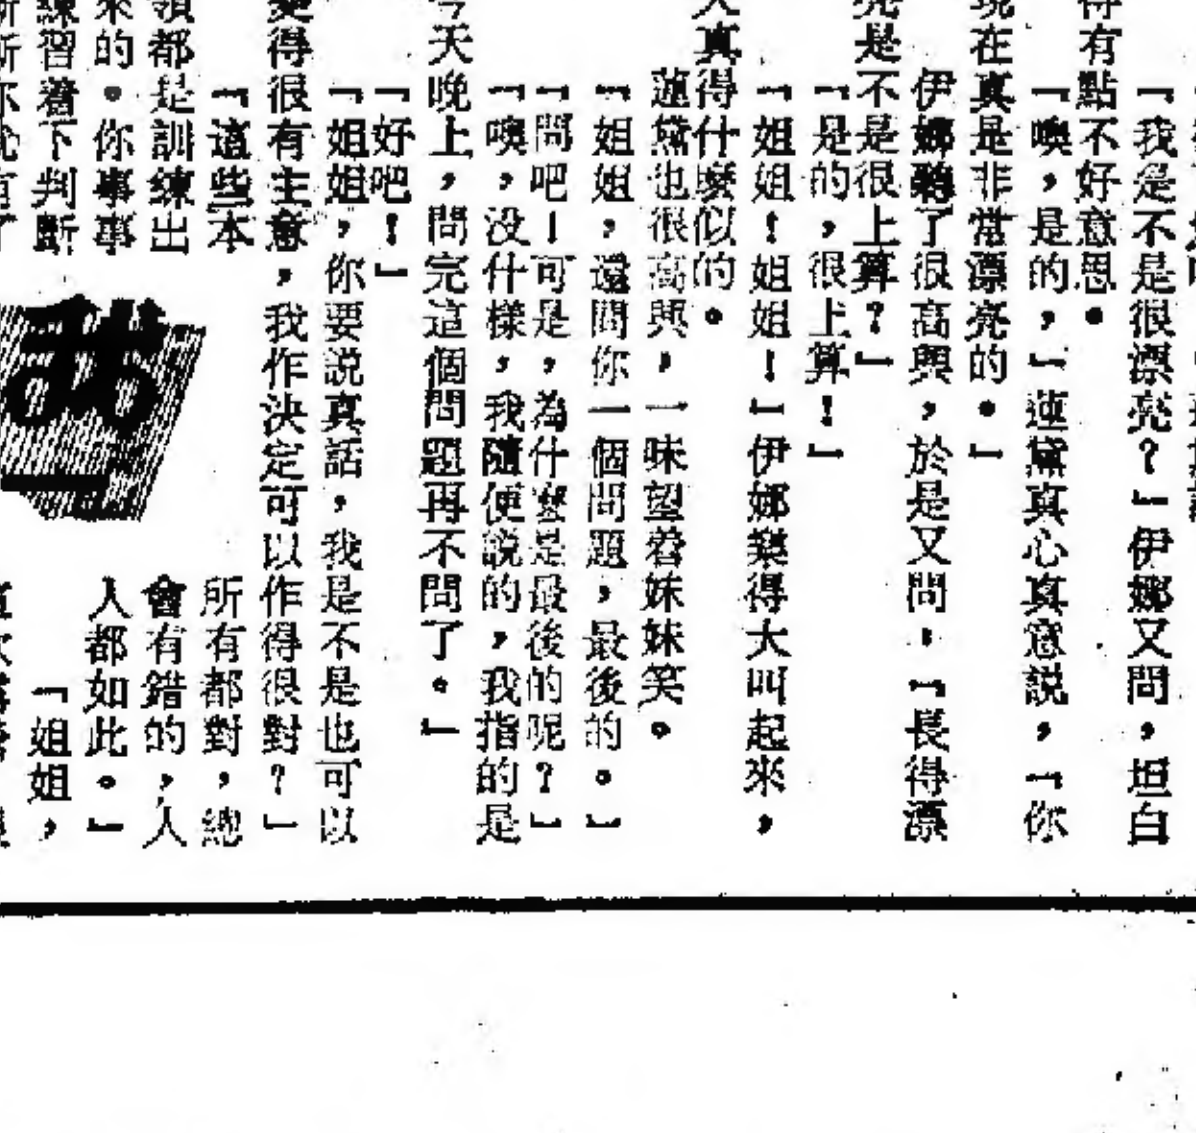 「我是不是很漂亮？」伊娜又問，坦白
得有點不好意思。
「噢，是的，」蓮黛真心真意説，「你
現在真是非常漂亮的。」
伊娜聽了很高興，於是又問，「長得漂
亮是不是很上算？」
「是的，很上算！」
「姐姐！姐姐！」伊娜樂得大叫起來，
真得什麼似的。
蓮黛也很高興，一味望着妹妹笑。
「姐姐，還問你一個問題，最後的。」
「問吧！可是，為什麼是最後的呢？」
「噢，没什樣，我隨便說的，我指的是
今天晚上，問完這個問題再不問了。」
「好吧！」
「姐姐，你要説真話，我是不是也可以
變得很有主意，我作決定可以作得很對？」
「這些本
領都是訓練出
來的。你事事
練習着下判斷
所有都對，總
會有錯的，人
人都如此。」
「姐姐，